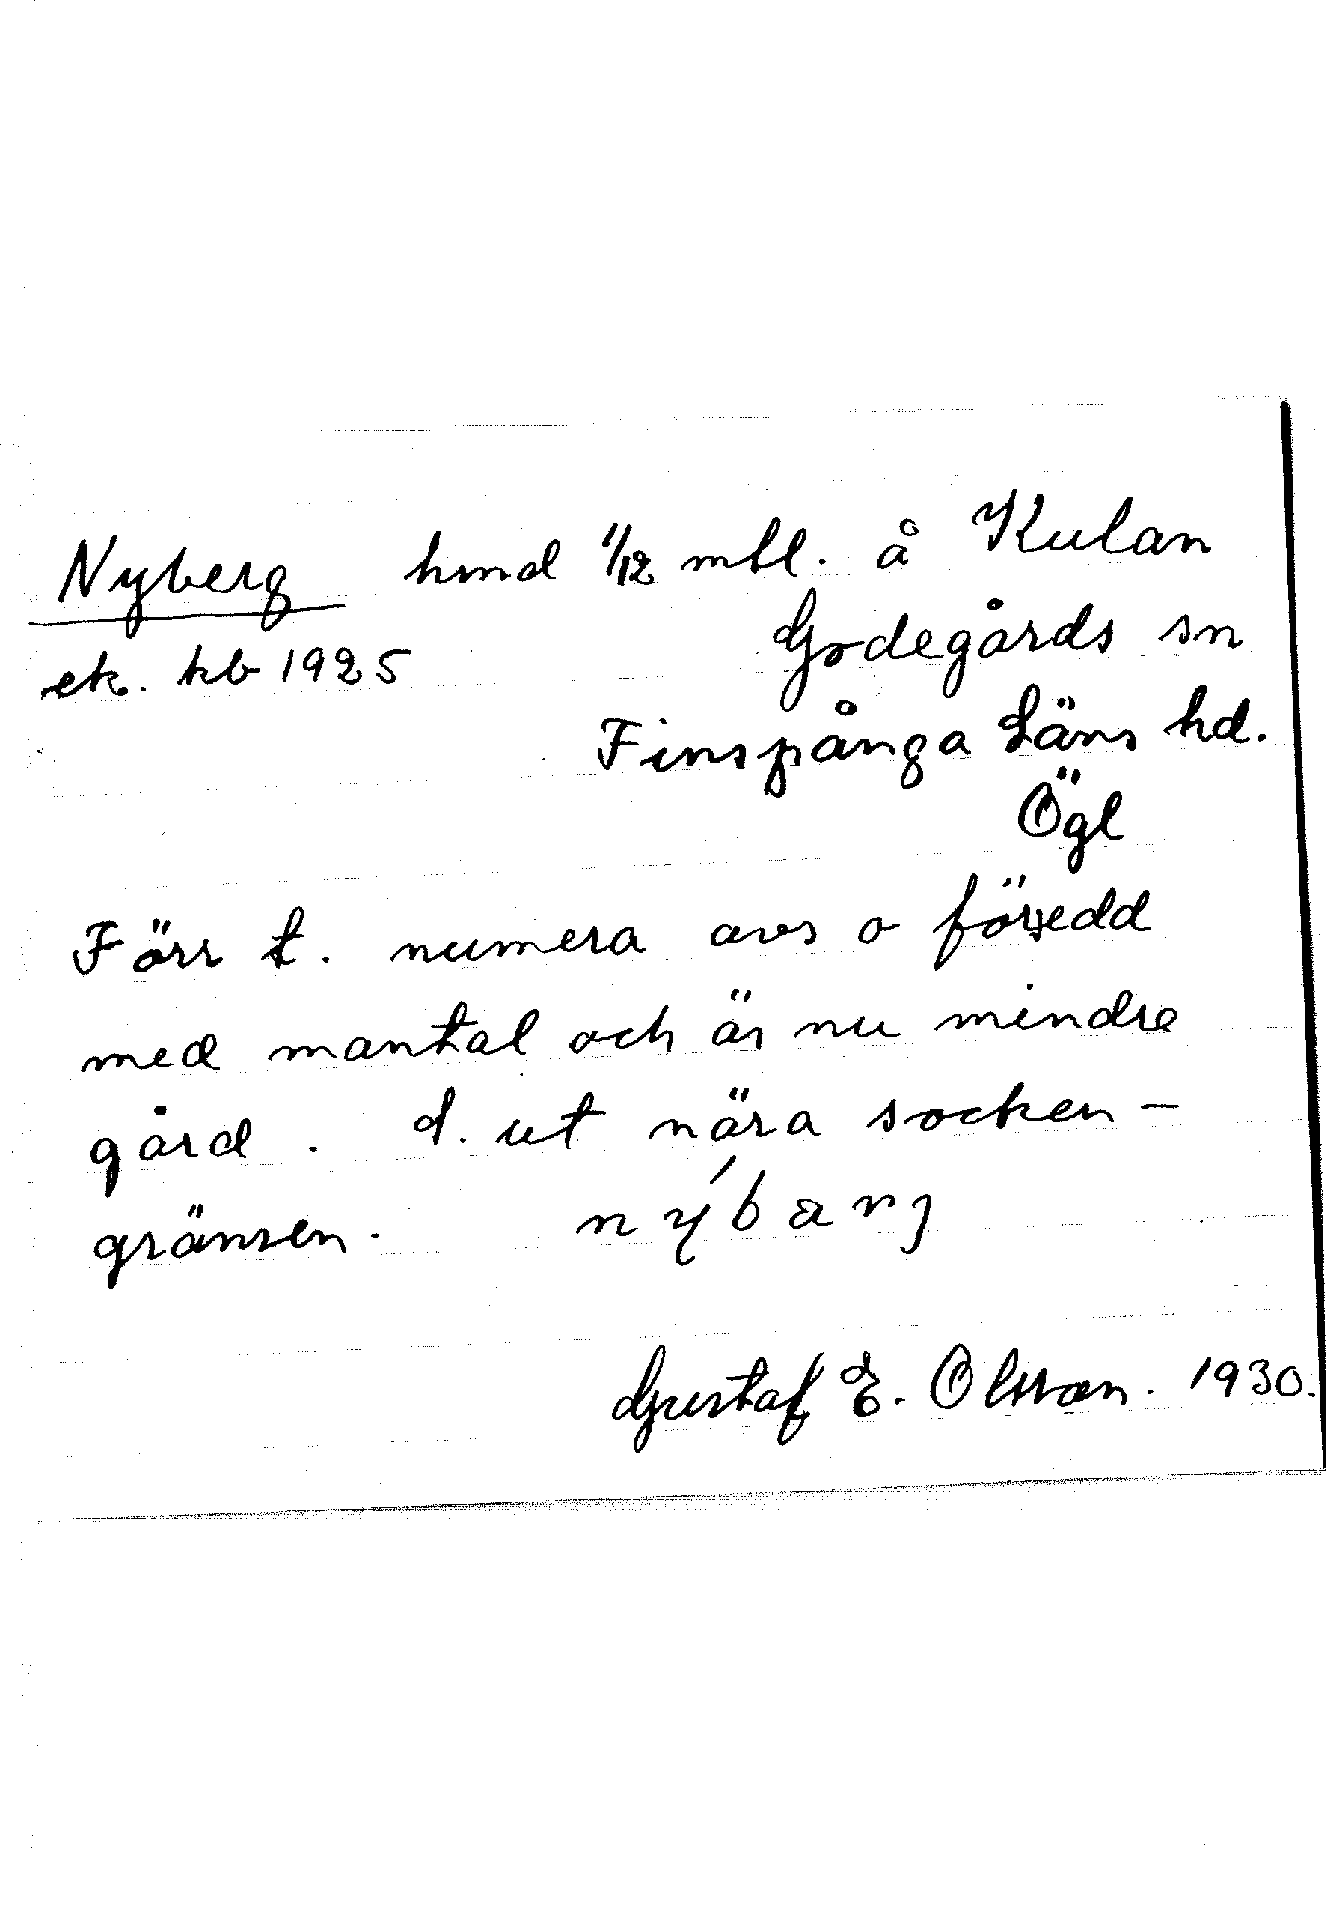 Nyberg hmd 1/12 mtl. å Kulan
ek. kb 1925 Godegårds sn
Finspånga Läns hd.
Ögl
Förr t. numera avs o försedd
med mantal och är nu mindre
gård. d. ut nära socken-
gränsen. nýbarj
Gustaf E. Olsson. 1930.